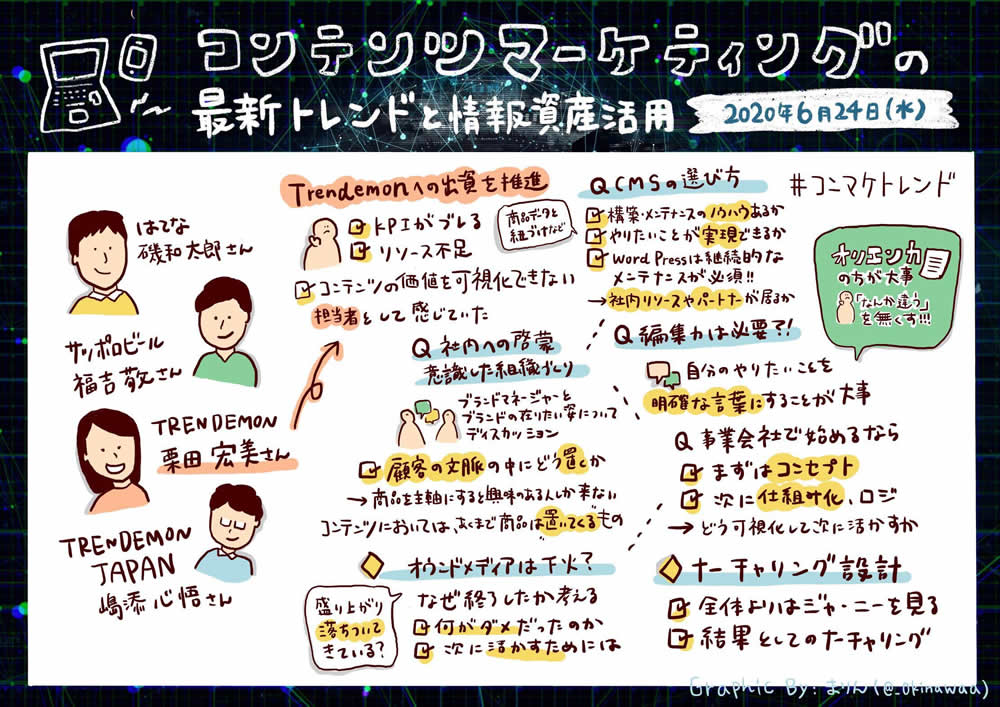 コンテンツマーケティングの
最新トレンドと情報資産活用
2020年6月24日(水)
はてな
磯和太郎さん
サッポロビール
福吉敬さん
TRENDEMON
栗田 宏美さん
TRENDEMON
JAPAN
嶋添 心悟さん
Trendemonへの出資を推進
KPIがブレる
リソース不足
コンテンツの価値を可視化できない
担当者として感じていた
Q 社内への啓蒙
意識した組織づくり
ブランドマネージャーと
ブランドの在りたい姿について
ディスカッション
顧客の文脈の中にどう置くか
→商品を主軸にすると興味のある人しか来ない
コンテンツにおいては、あくまで商品は置いてくるもの
オウンドメディアは下火?
盛り上がり
落ちついて
きている?
なぜ終了したか考える
何がダメだったのか
次に活かすためには
Q CMSの選び方
商品データと
紐づけなど
構築・メンテナンスのノウハウあるか
やりたいことが実現できるか
Word Pressは継続的な
メンテナンスが必須!!
→社内リソースやパートナーが居るか
Q 編集力は必要?!
自分のやりたいことを
明確な言葉にすることが大事
Q 事業会社で始めるなら
まずはコンセプト
次に仕組み化、ロジ
→どう可視化して次に活かすか
ナーチャリング設計
全体よりはジャーニーを見る
結果としてのナーチャリング
#コンマケトレンド
オリエンカ
のちが大事
「なんか違う」
を無くす!!!
Graphic By: まりん (@_okinawaa)